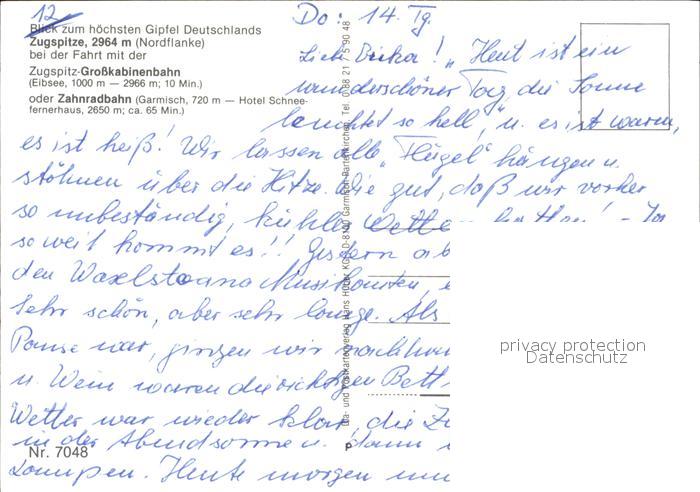 12
Do: 14. Tg.
Blick zum höchsten Gipfel Deutschlands
Zugspitze, 2964 m (Nordflanke)
bei der Fahrt mit der
Zugspitz-Großkabinenbahn
(Eibsee, 1000 m — 2966 m; 10 Min.)
oder Zahnradbahn (Garmisch, 720 m — Hotel Schnee-
fernerhaus, 2650 m; ca. 65 Min.)
Liebe Erika! „Heut ist ein
wunderschöner Tag, die Sonne
leuchtet so hell," u. es ist warm,
es ist heiß! Wir lassen alle „Flügel" hängen u.
stöhnen über die Hitze. Wie gut, daß wir vorher
so unbeständig, kühles Wette hatten! - Ja
so weit kommt es!! Gestern ab
den Musikanten,
sehr schön, aber sehr lange. Als
Pause war, gingen wir
u. Wein waren die richtigen Bett
Wetter war wieder klar, die Zu
in der Abendsonne u. dann
Lampen. Heute morgen
Nr. 7048
und Postkartenverlag Hans Huber KG, D-8100 Garmisch-Partenkirchen, Tel. 0 88 21 / 5 90 48
privacy protection
Datenschutz